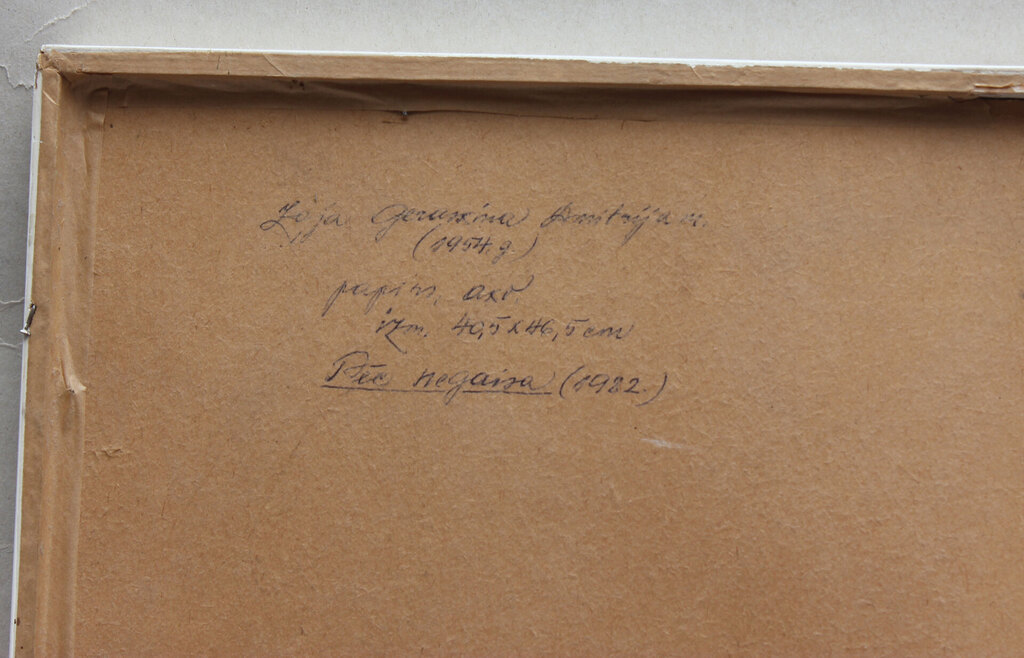 Zoja Geraskina Dmitrija m.
(1954. g.)
papīrs, akv.
izm. 40,5 x 46,5 cm
Pēc negaisa (1982.)